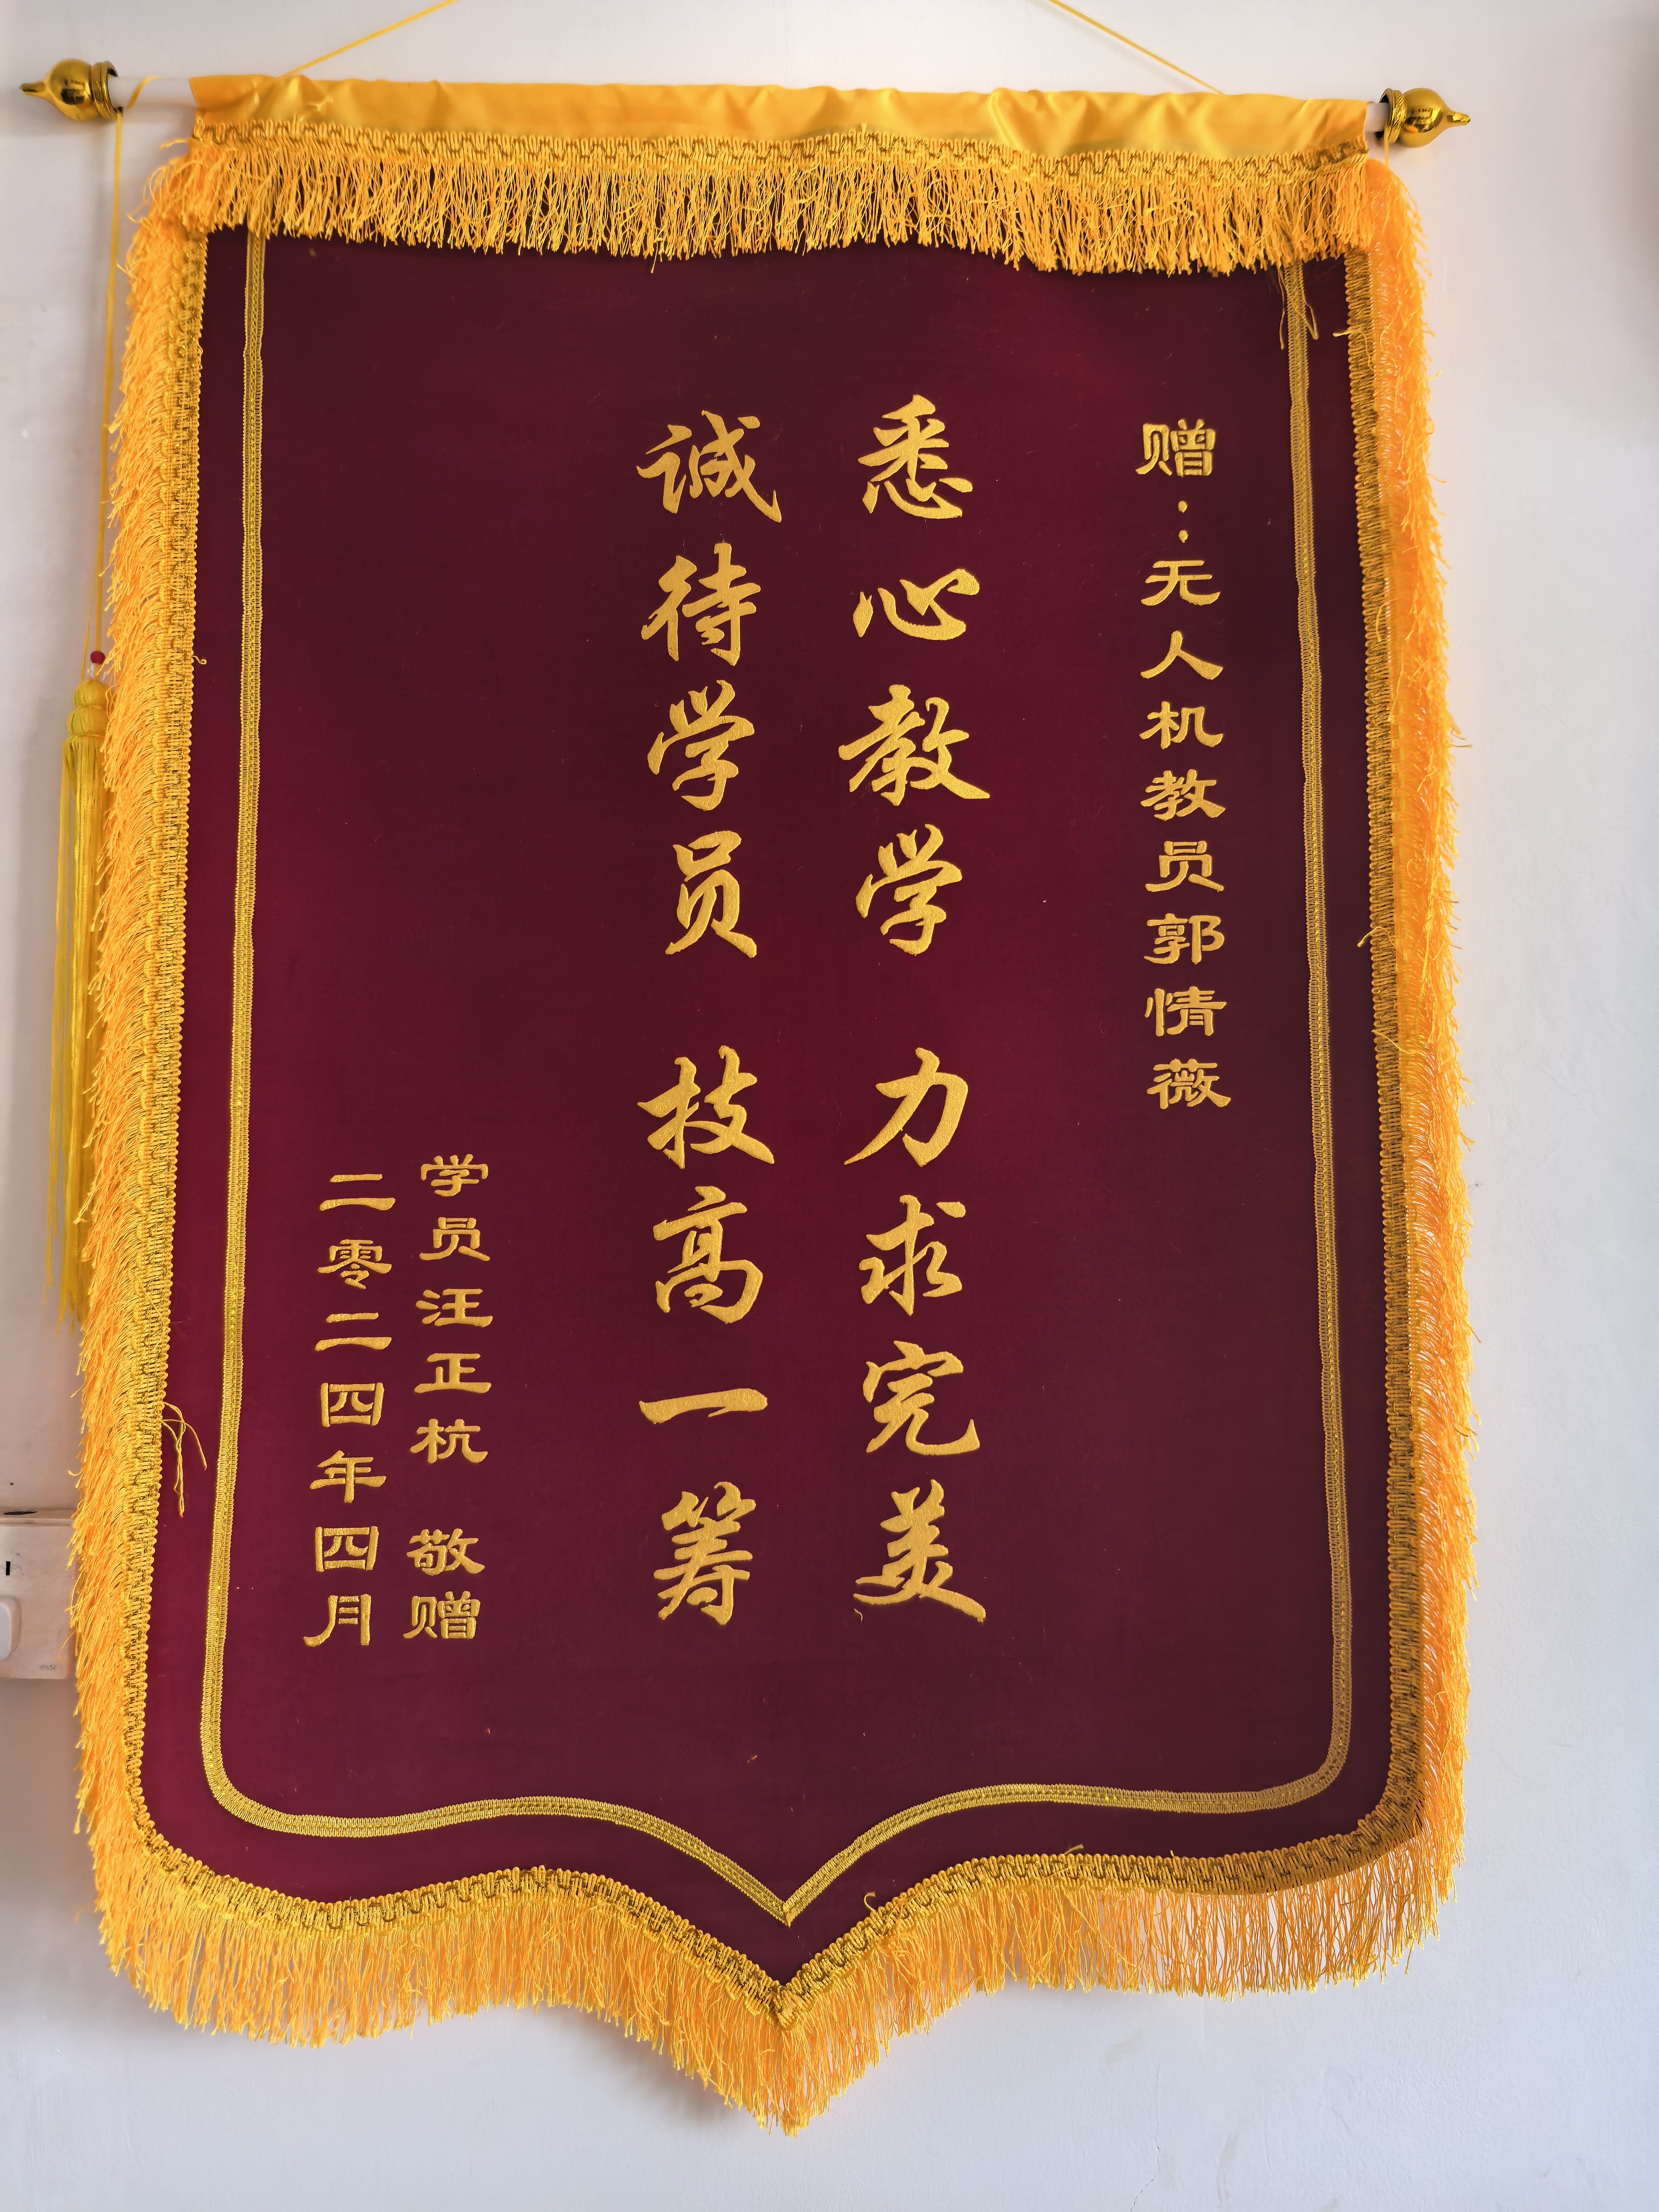 赠：无人机教员郭情薇
悉心教学 力求完美
诚待学员 技高一筹
学员汪正杭 敬赠
二零二四年四月